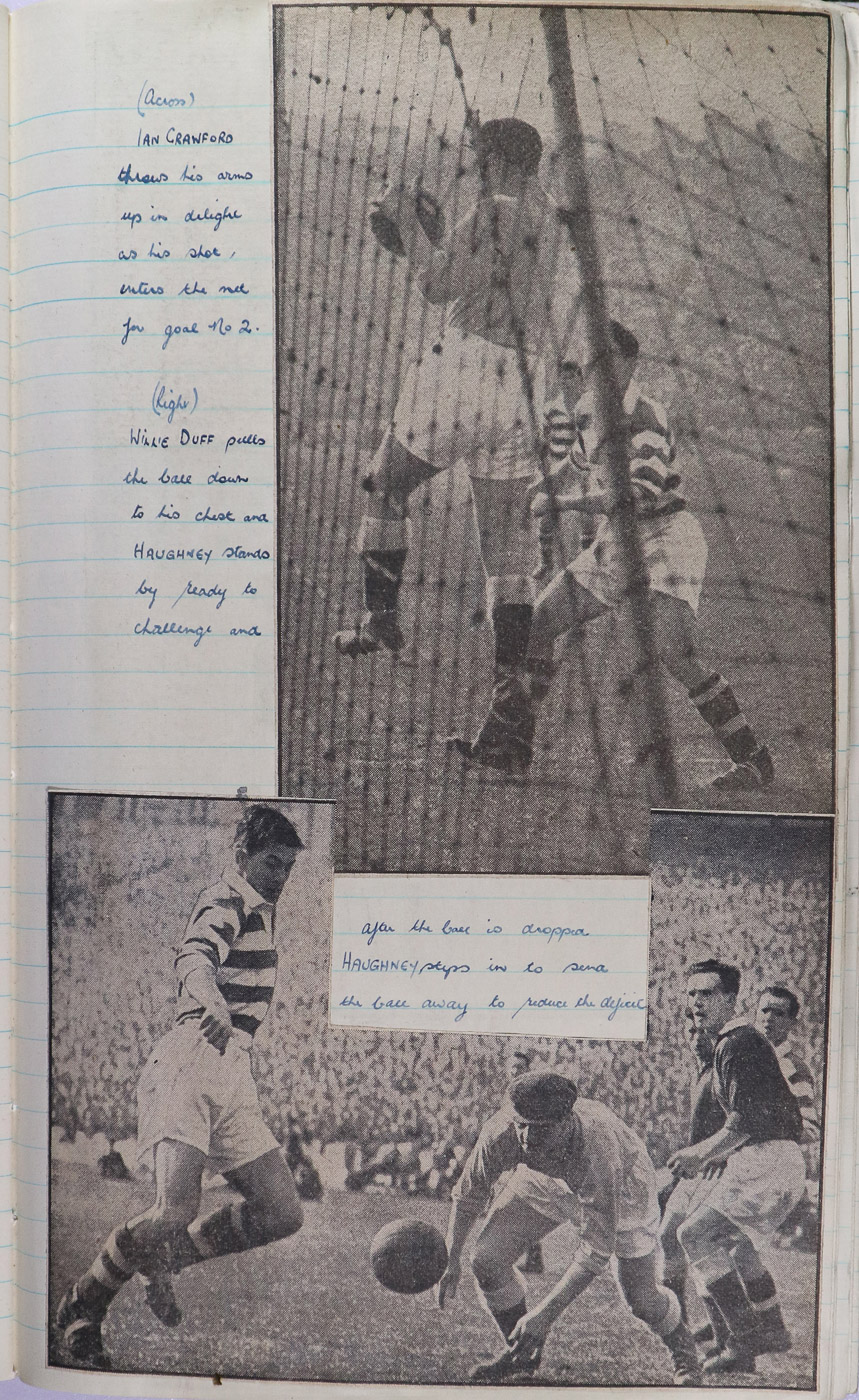 (Across)
IAN CRAWFORD
throws his arms
up in delight
as his shot,
enters the net
for goal No 2.
(Right)
WILLIE DUFF pulls
the ball down
to his chest and
HAUGHNEY stands
by ready to
challenge and
after the ball is dropped
HAUGHNEY steps in to send
the ball away to reduce the deficit